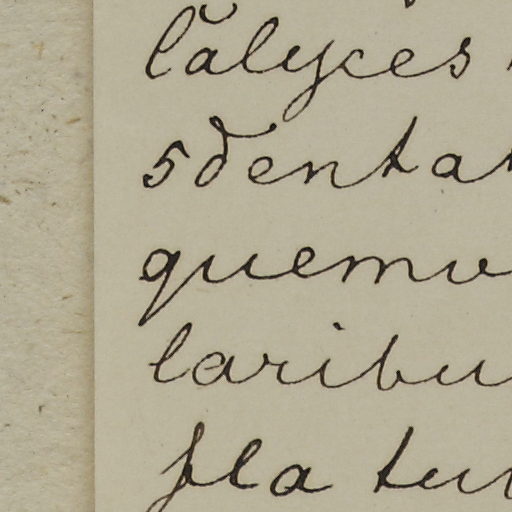 Calyces
5dentat
quemv
laribu
pla tu